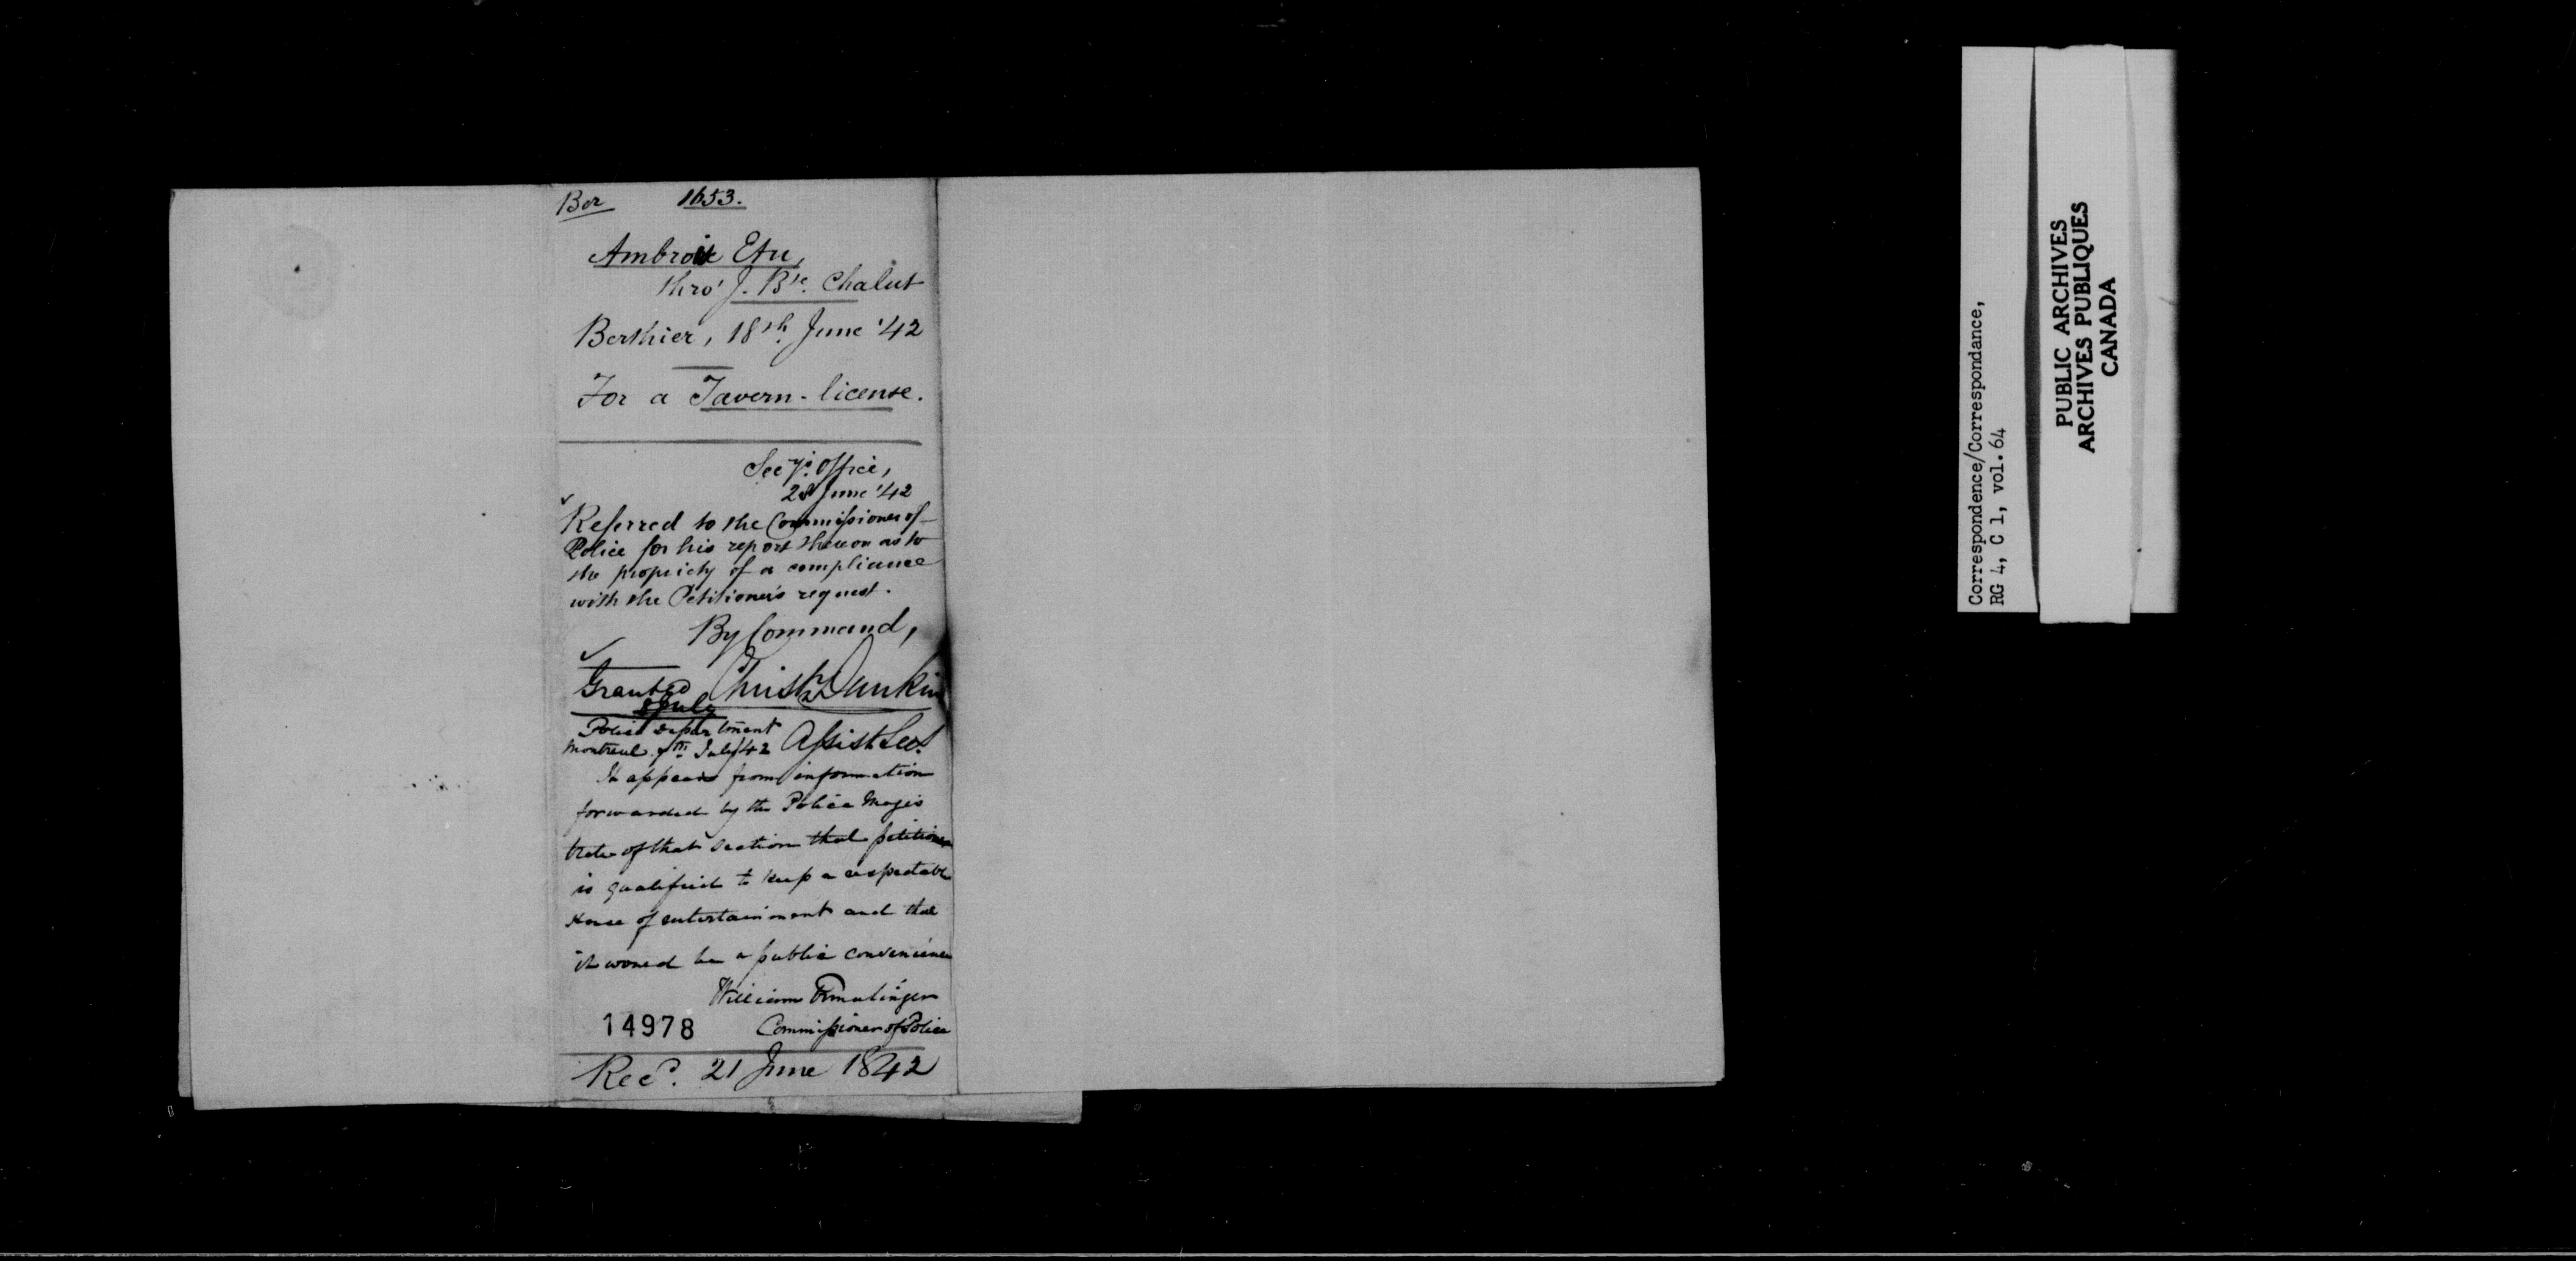 Ber 1653.
Ambroise Etu,
thro' J. Bte. Chalut
Berthier, 18th. June '42
For a Tavern-license.
Secy's. Office,
28 June '42
Referred to the Commissioner of
Police for his report thereon as to
the propriety of a compliance
with the Petitioner's request.
By Command,
Granted Christr Dunkin
July
Police Department
Montreal 7th July '42 Assist Sec.
It appears from information
forwarded by the Police Magis
trate of that section that petitioner
is qualified to keep a respectable
House of entertainment and that
it would be a public convenience
William Ermatinger
14978 Commissioner of Police
Recd. 21 June 1842
Correspondence/Correspondance,
RG 4, C 1, vol. 64
PUBLIC ARCHIVES
ARCHIVES PUBLIQUES
CANADA